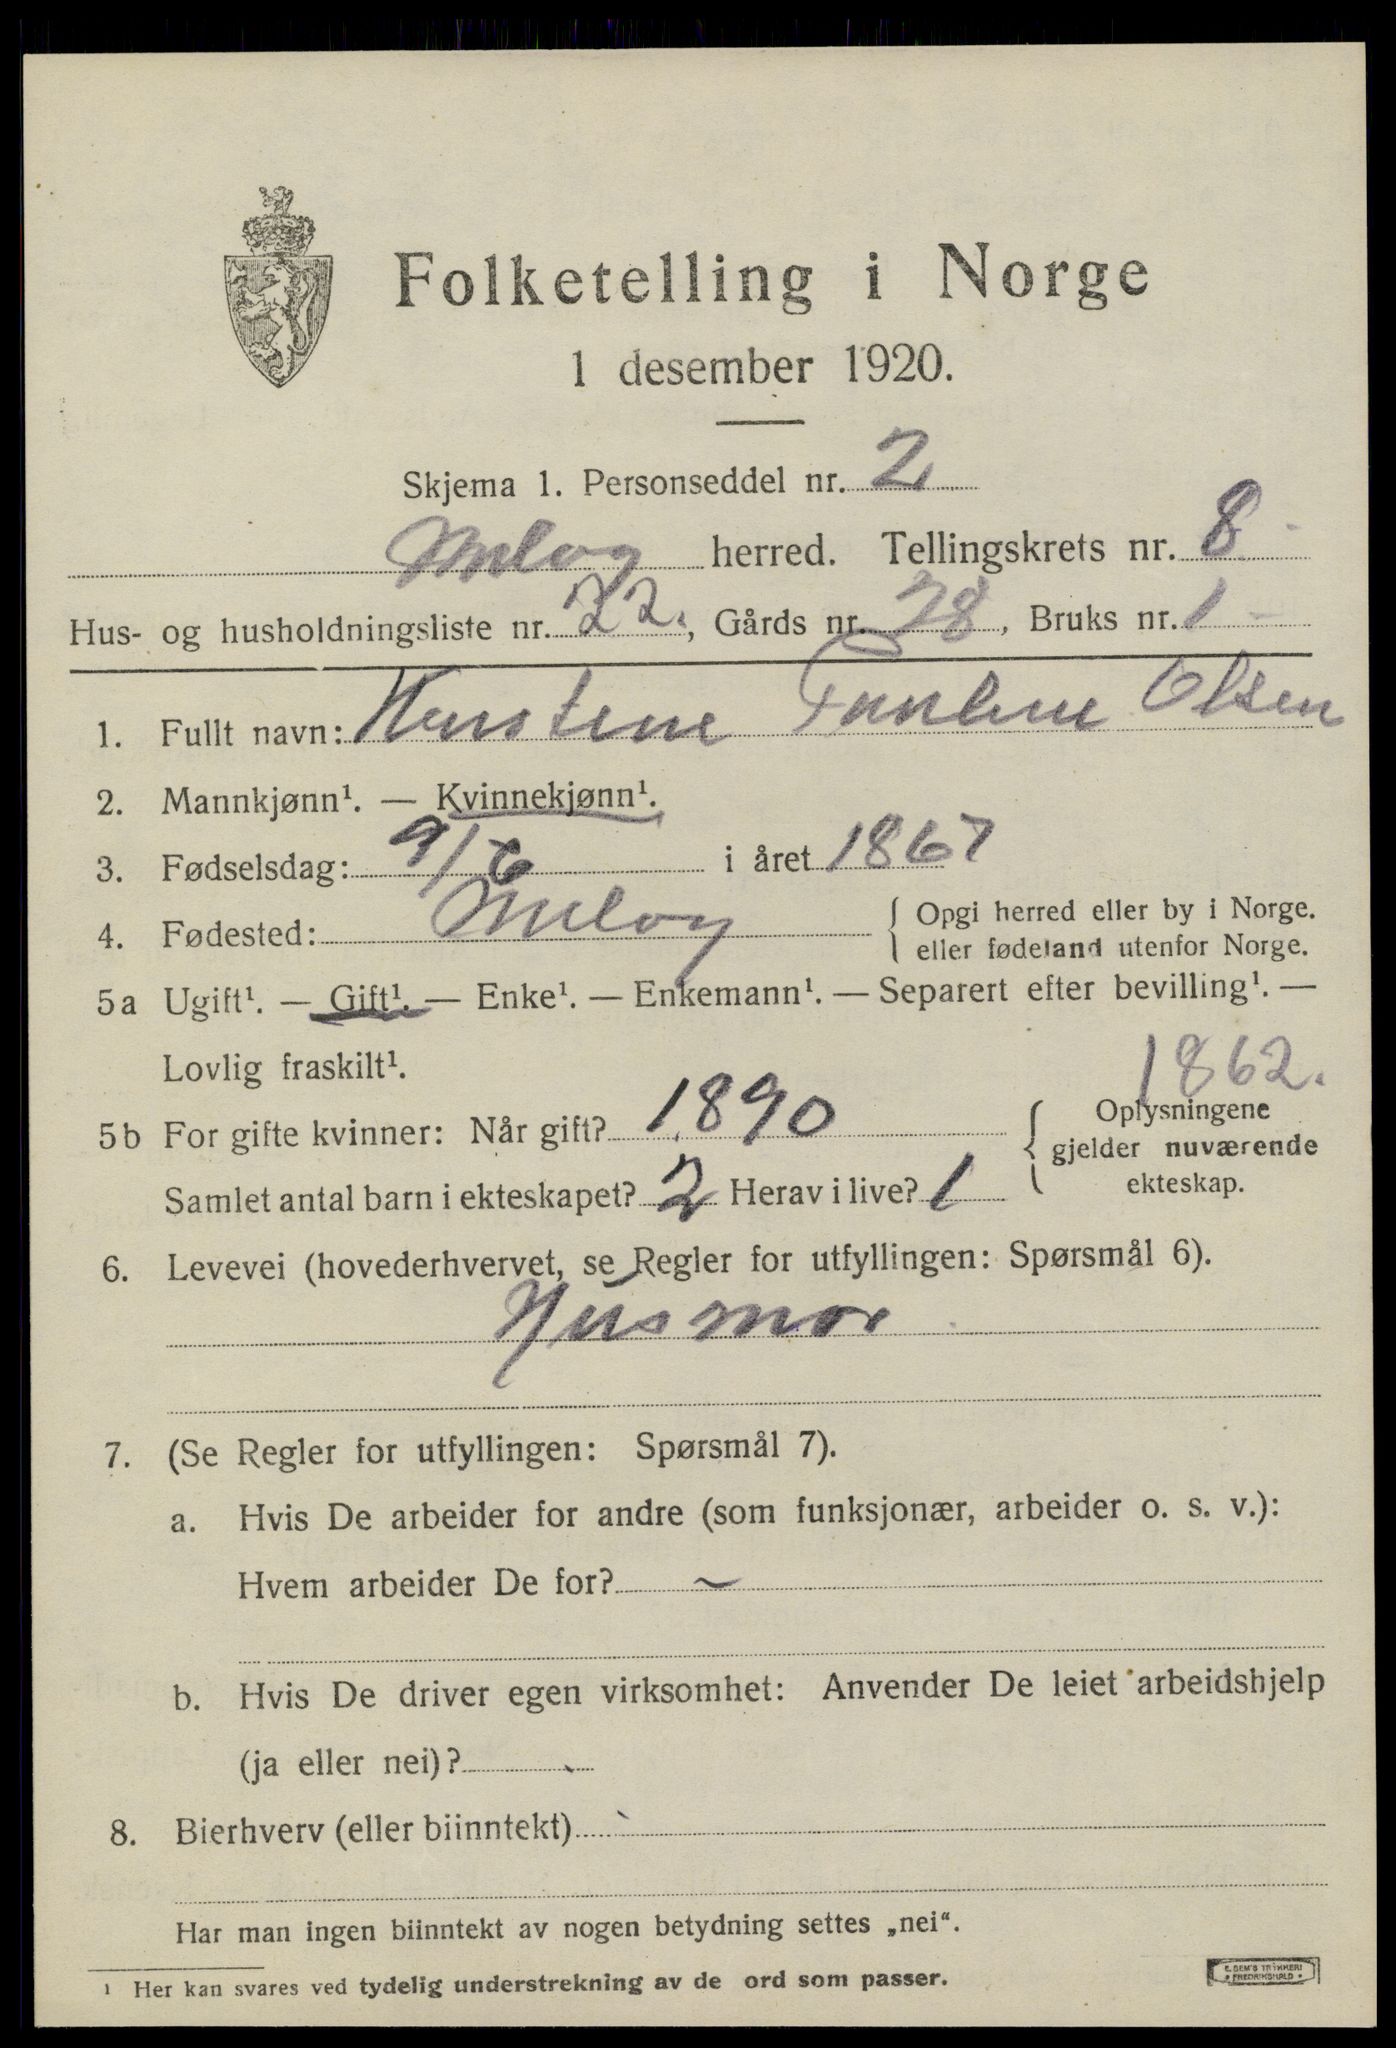 Folketelling i Norge
1 desember 1920.
Skjema 1. Personseddel nr. 2
Meløy herred. Tellingskrets nr. 8
Hus- og husholdningsliste nr. 22., Gårds nr. 28, Bruks nr. 1
1. Fullt navn: Olsen
2. Mannkjønn¹. — Kvinnekjønn¹.
3. Fødselsdag: 9/6 i året 1867
4. Fødested: Meløy { Opgi herred eller by i Norge.
eller fødeland utenfor Norge.
5a Ugift¹. — Gift¹. — Enke¹. — Enkemann¹. — Separert efter bevilling¹. —
Lovlig fraskilt¹.
1862.
5b For gifte kvinner: Når gift? 1890 { Oplysningene
gjelder nuværende
Samlet antal barn i ekteskapet? 2 Herav i live? 1 ekteskap.
6. Levevei (hovederhvervet, se Regler for utfyllingen: Spørsmål 6).
Husmor
7. (Se Regler for utfyllingen: Spørsmål 7).
a. Hvis De arbeider for andre (som funksjonær, arbeider o. s. v.):
Hvem arbeider De for? ~
b. Hvis De driver egen virksomhet: Anvender De leiet arbeidshjelp
(ja eller nei)?
8. Bierhverv (eller biinntekt)
Har man ingen biinntekt av nogen betydning settes „nei“.
¹ Her kan svares ved tydelig understrekning av de ord som passer.
E. SEM'S TRYKKERI
• FREDRIKSHALD •